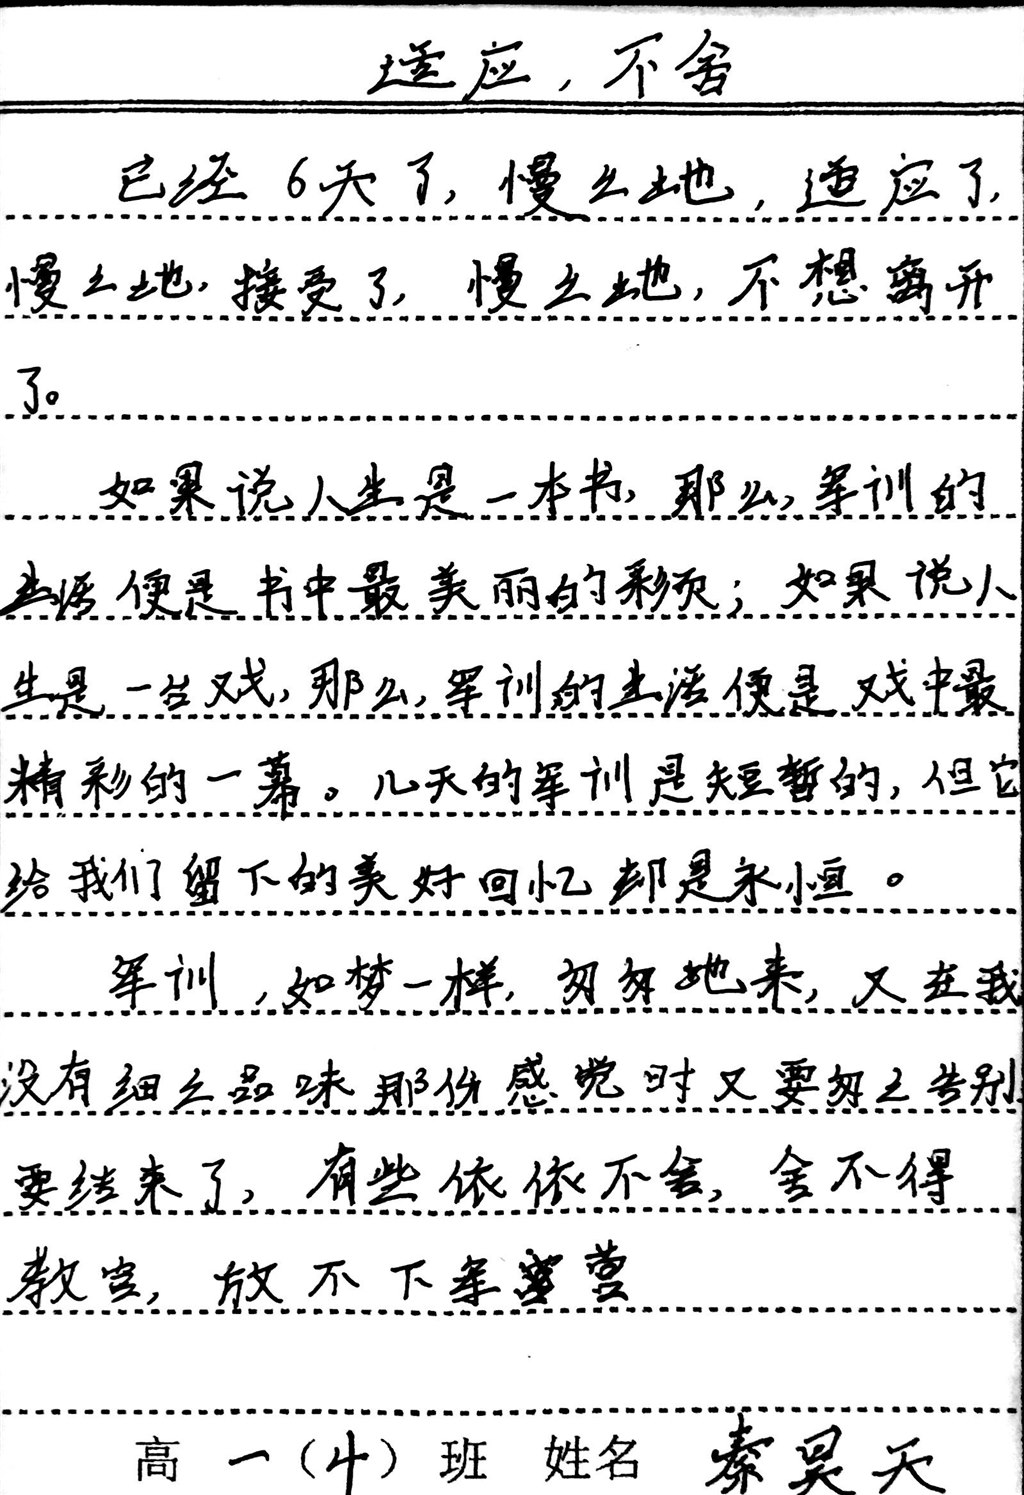 适应,不舍
已经6天了,慢々地,适应了,
慢々地,接受了,慢々地,不想离开
了。
如果说人生是一本书,那么,军训的
生活便是书中最美丽的彩页;如果说人
生是一台戏,那么,军训的生活便是戏中最
精彩的一幕。几天的军训是短暂的,但它
给我们留下的美好回忆却是永恒。
军训,如梦一样,匆匆地来,又在我
没有细々品味那份感觉时又要匆々告别
要结束了,有些依依不舍,舍不得
教官,放不下军营
高一(4)班 姓名 秦昊天